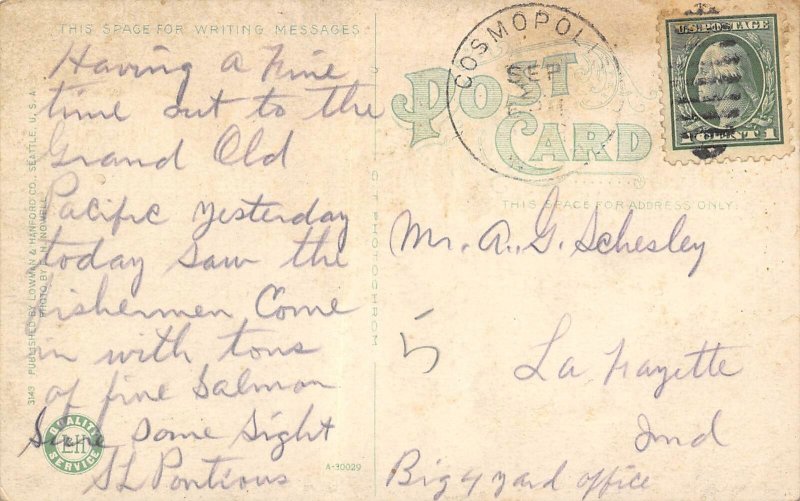 THIS SPACE FOR WRITING MESSAGES
Having a fine
time out to the
Grand Old
Pacific yesterday
today saw the
fishermen Come
in with tons
of fine Salmon
Sure Some Sight
S L Pontious
3149 PUBLISHED BY LOWMAN & HANFORD CO. SEATTLE, U.S.A.
PHOTO BY
QUALITY
L&H
SERVICE
A-30029
PHOTOCHROM
COSMOPOLIS
SEP
POST
CARD
U.S. POSTAGE
1 CENT 1
THIS SPACE FOR ADDRESS ONLY.
Mr. A. G. Schesley
5
La Fayette
Ind
Big 4 yard office